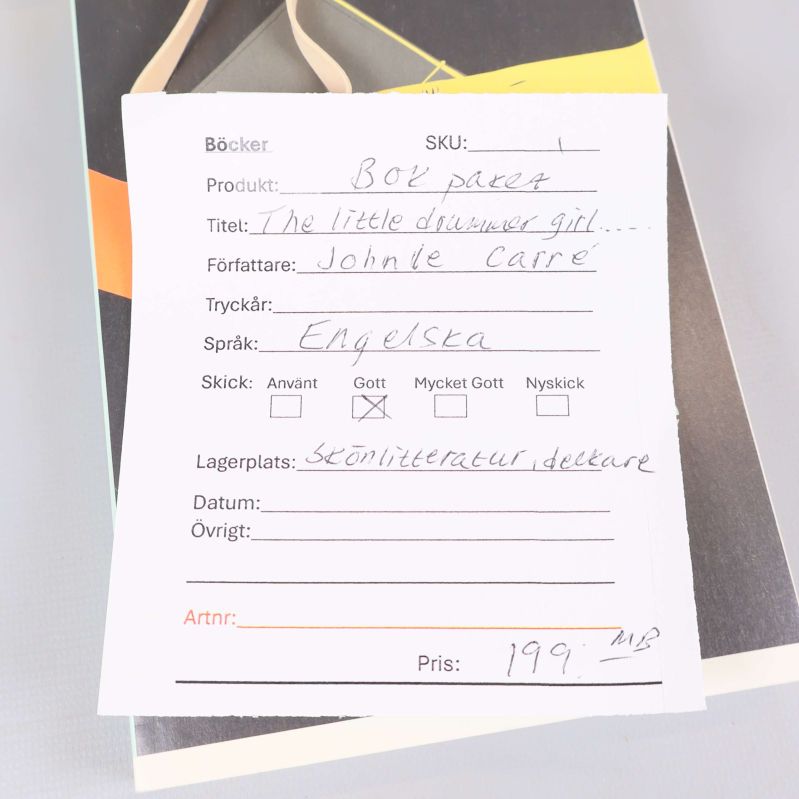 Böcker SKU: 1
Produkt: Bok paket
Titel: The little drummer girl.....
Författare: John le Carré
Tryckår:
Språk: Engelska
Skick: Använt Gott Mycket Gott Nyskick
Lagerplats: Skönlitteratur, deckare
Datum:
Övrigt:
Artnr:
Pris: 199:- MB